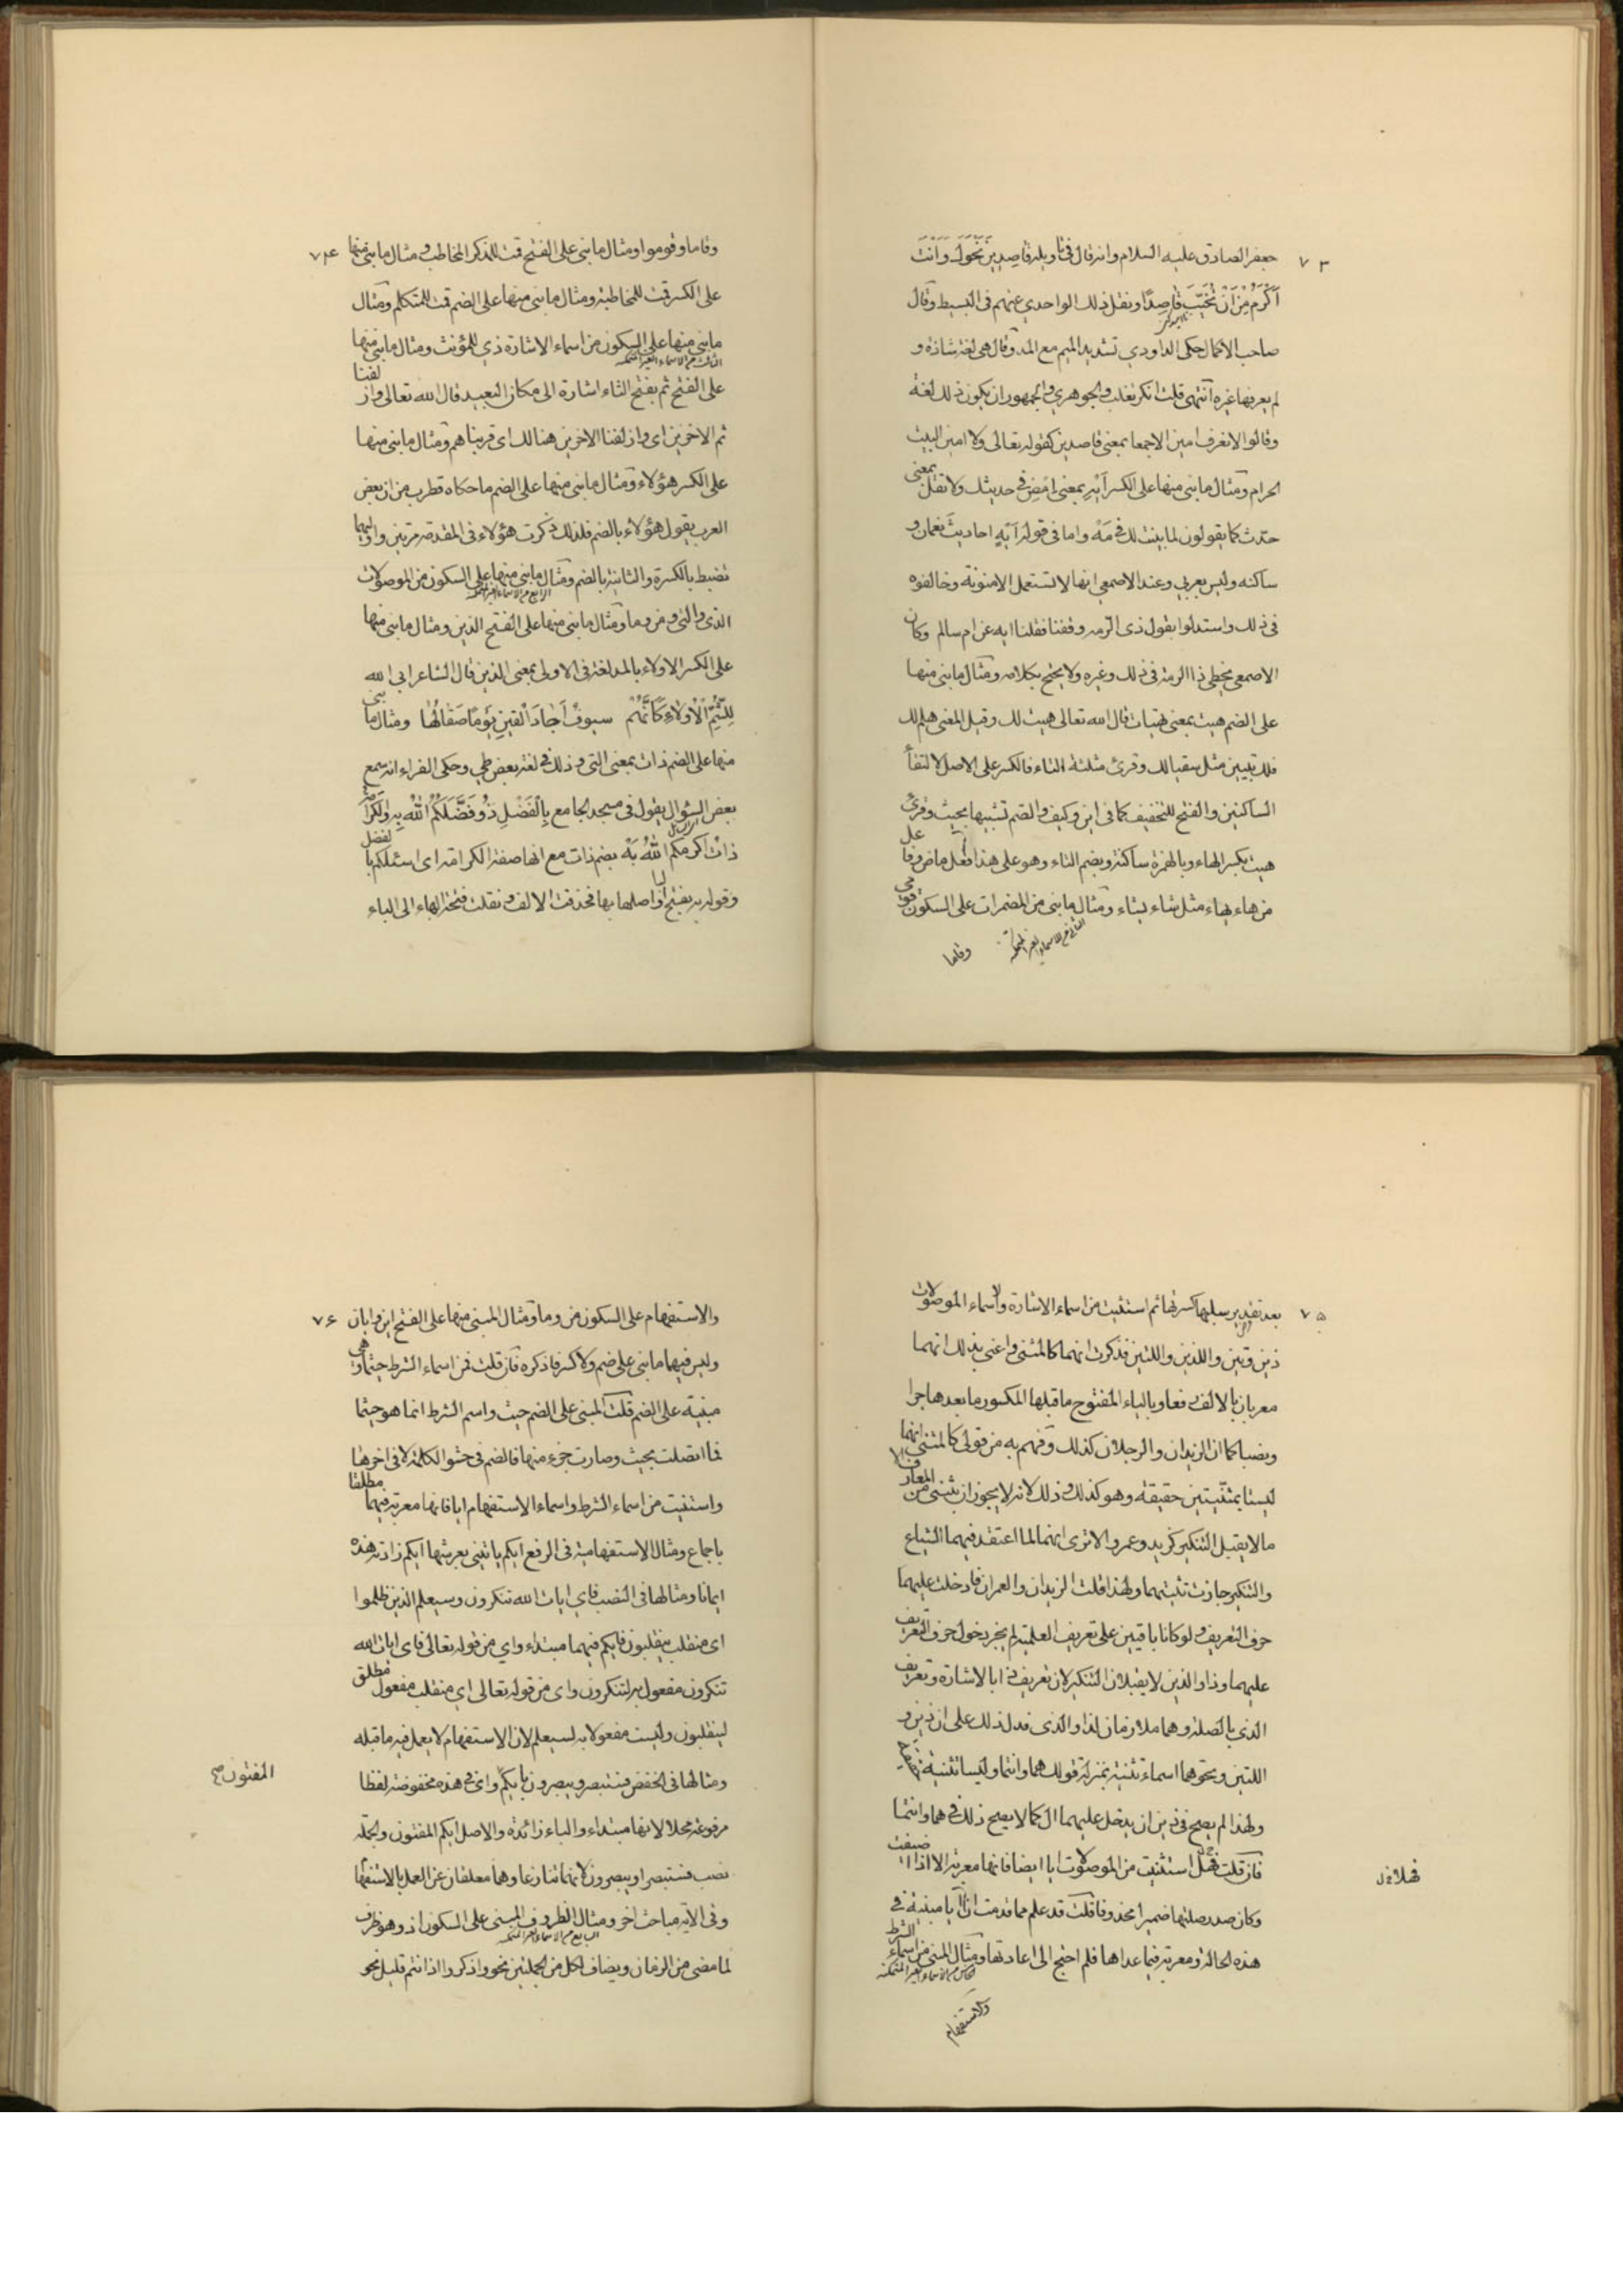 ٧٣
جعفر الصادق عليه السلام وانه قال في تاويله قَاصِدِينَ نَحْوَكَ وَاَنْتَ
اَكْرَمُ مِنْ اَنْ تُخَيِّبَ قَاصِدًا ونقل ذلك الواحدي عنهم في البسيط وقال
صاحب الاكمال حكى الداودي تشديد الميم مع المد وقال هي لغة شاذة و
لم يعرفها غيره انتهى قلت انكر ثعلب والجوهري والجمهور ان يكون ذلك لغة
وقالوا لا نعرف امين الا جمعا بمعنى قاصدين كقوله تعالى ولا امين البيت
الحرام ومثال ما بنى منها على الكسر اَيْهِ بمعنى امض في حديثك ولا تقل بمعنى
حدث كما يقولون لما بينت لك في مَهْ واما في قوله اَيْهِ احاديث نعمان و
ساكنه وليس بعربي وعند الاصمعي انها لا تستعمل الا منونة وخالفوه
في ذلك واستدلوا بقول ذى الرمه وقفنا فقلنا ايه عن ام سالم وكان
الاصمعي يخطى ذا الرمة في ذلك وغيره ولا يحتج بكلامه ومثال ما بنى منها
على الضم هيت بمعنى تهيات قال الله تعالى هيت لك وقيل المعنى هلم لك
فلك تبيين مثل سقيا لك وقرئ مثلثة التاء فالكسر على الاصل لا لتقأ
الساكنين والفتح للتخفيف كما في اين وكيف والضم تشبيها بحيث وقرئ
هيت بكسر الهاء وبالهمزة ساكنة وبضم التاء وهو على هذا فعل ماض وفاعل
من هاء يهاء مثل شاء يشاء ومثال ما بنى من المضمرات على السكون قومى
الثاني من الاسماء الغير المتمكنة
وقاما
٧٤
وقاما وقوموا ومثال ما بنى على الفتح قمت للمذكر المخاطب ومثال ما بنى منها
على الكسر قمت للمخاطبة ومثال ما بنى منها على الضم قمت للمتكلم ومثال
ما بنى منها على السكون من اسماء الاشارة ذي للمؤنث ومثال ما بنى منها
الثالث من الاسماء الغير المتمكنة
على الفتح ثم بفتح الثاء اشارة الى مكان البعيد قال الله تعالى وازلفنا
ثم الاخرين اى وازلفنا الاخرين هنالك اى قربناهم ومثال ما بنى منها
على الكسر هؤلاء ومثال ما بنى منها على الضم ما حكاه قطرب من ان بعض
العرب يقول هؤلاءُ بالضم فلذلك ذكرت هؤلاء في المقدمة مرتين واوليهما
تضبط بالكسرة والثانية بالضم ومثال ما بنى منها على السكون من الموصولات
الرابع من الاسماء الغير المتمكنة
الذى والتى ومن وما ومثال ما بنى منها على الفتح الذين ومثال ما بنى منها
على الكسر الاولاء بالمد لغة في الاولى بمعنى الذين قال الشاعر ابى الله
لِلشُّمِّ الْاُولَاءِ كَاَنَّهُمْ سيوفٌ اَجَادَ الْقَينُ يَوْمًا صَقَالُهَا ومثال ما بنى
منها على الضم ذات بمعنى التى وذلك في لغة بعض طي وحكى الفراء انه سمع
بعض السؤال يقول في مسجد الجامع بِالْفَضْلِ ذُو فَضَّلَكُمُ اللّٰهُ بِهِ وَالْكَرَامَةِ
ذاتُ اكرمكم اللهُ بَهْ بضم ذات مع انها صفة الكرامة اى اسئلكم بالفضل
وقوله به بفتح الباء اصلها بها فحذفت الالف ونقلت فتحة الهاء الى الباء
٧٥
بعد تقدير سلبها كسرتها ثم استثنيت من اسماء الاشارة والاسماء الموصولات
ذين وتين واللذين واللتين فذكرت انهما كالمثنى واعنى بذلك انهما
معربان بالالف رفعا وبالياء المفتوح ما قبلها المكسور ما بعدها جرا
ونصبا كما ان الزيدان والرجلان كذلك وفهم به من قولى كالمثنى انهما
ليستا بمثنيتين حقيقة وهو كذلك وذلك لانه لا يجوز ان يثنى من المعارف
ما لا يقبل التنكير كزيد وعمرو الا ترى انهما لما اعتقد فيهما الشياع
والتنكير جازت تثنيتهما ولهذا قلت الزيدان والعمران فادخلت عليهما
حرف التعريف ولو كانا باقيين على تعريف العلمية لم يجز دخول حرف التعريف
عليهما وذا والذين لا يقبلان التنكير لان تعريف ذا بالاشارة وتعريف
الذي بالصلة وهما ملازمان لذا والذى فدل ذلك على ان ذين و
اللتين ونحوهما اسماء تثنية بمنزلة قولك هما وانتما وليسا تثنية
ولهذا لم يصح في ذين ان يدخل عليهما ال كما لا يصح ذلك في هما وانتما
فان قلت فهلا استثنيت من الموصولات ايا ايضا فانها معربة الا اذا اضيفت
فهلا
وكان صدر صلتها ضميرا محذوفا قلت قد علم مما قدمت ان ايا مبنية في
هذه الحالة ومعربة فيما عداها فلم احتج الى اعادتها ومثال المبنى من اسماء الشرط
الخامس من الاسماء الغير المتمكنة
والاستفهام
٧٦
والاستفهام على السكون من وما ومثال المبنى منها على الفتح اين وايان
وليس فيهما ما بنى على ضم ولا كسر فاذكره فان قلت فمن اسماء الشرط حيثما وهى
مبنية على الضم قلت المبنى على الضم حيث واسم الشرط انما هو حيثما
فما اتصلت بحيث وصارت جزء منها فالضم في حشو الكلمة لا في اخرها
واستثنيت من اسماء الشرط واسماء الاستفهام ايا فانها معربة فيهما مطلقا
باجماع ومثال الاستفهامية في الرفع ايكم ياتيني بعرشها ايكم زادته هذه
ايمانا ومثالها في النصب فاي ايات الله تنكرون وسيعلم الذين ظلموا
اى منقلب ينقلبون فايكم فيهما مبتداء واي من قوله تعالى فاى ايات الله
تنكرون مفعول به لتنكرون واى من قوله تعالى اي منقلب مفعول مطلق
لينقلبون وليست مفعولا به لسيعلم لان الاستفهام لا يعمل فيه ما قبله
ومثالها في الخفض فستبصر ويبصرون بايكم واى في هذه مخفوضة لفظا
المفتون صح
مرفوعة محلا لانها مبتداء والباء زائدة والاصل ايكم المفتون والجملة
نصب فستبصر او يبصرون لانهما تنازعا وهما معلقان عن العمل بالاستفها
وفى الآية مباحث اخر ومثال الظروف المبنى على السكون اذ وهو ظرف
السابع من الاسماء الغير المتمكنة
لما مضى من الزمان ويضاف لكل من الجملتين نحو واذكروا اذ انتم قليل نحو